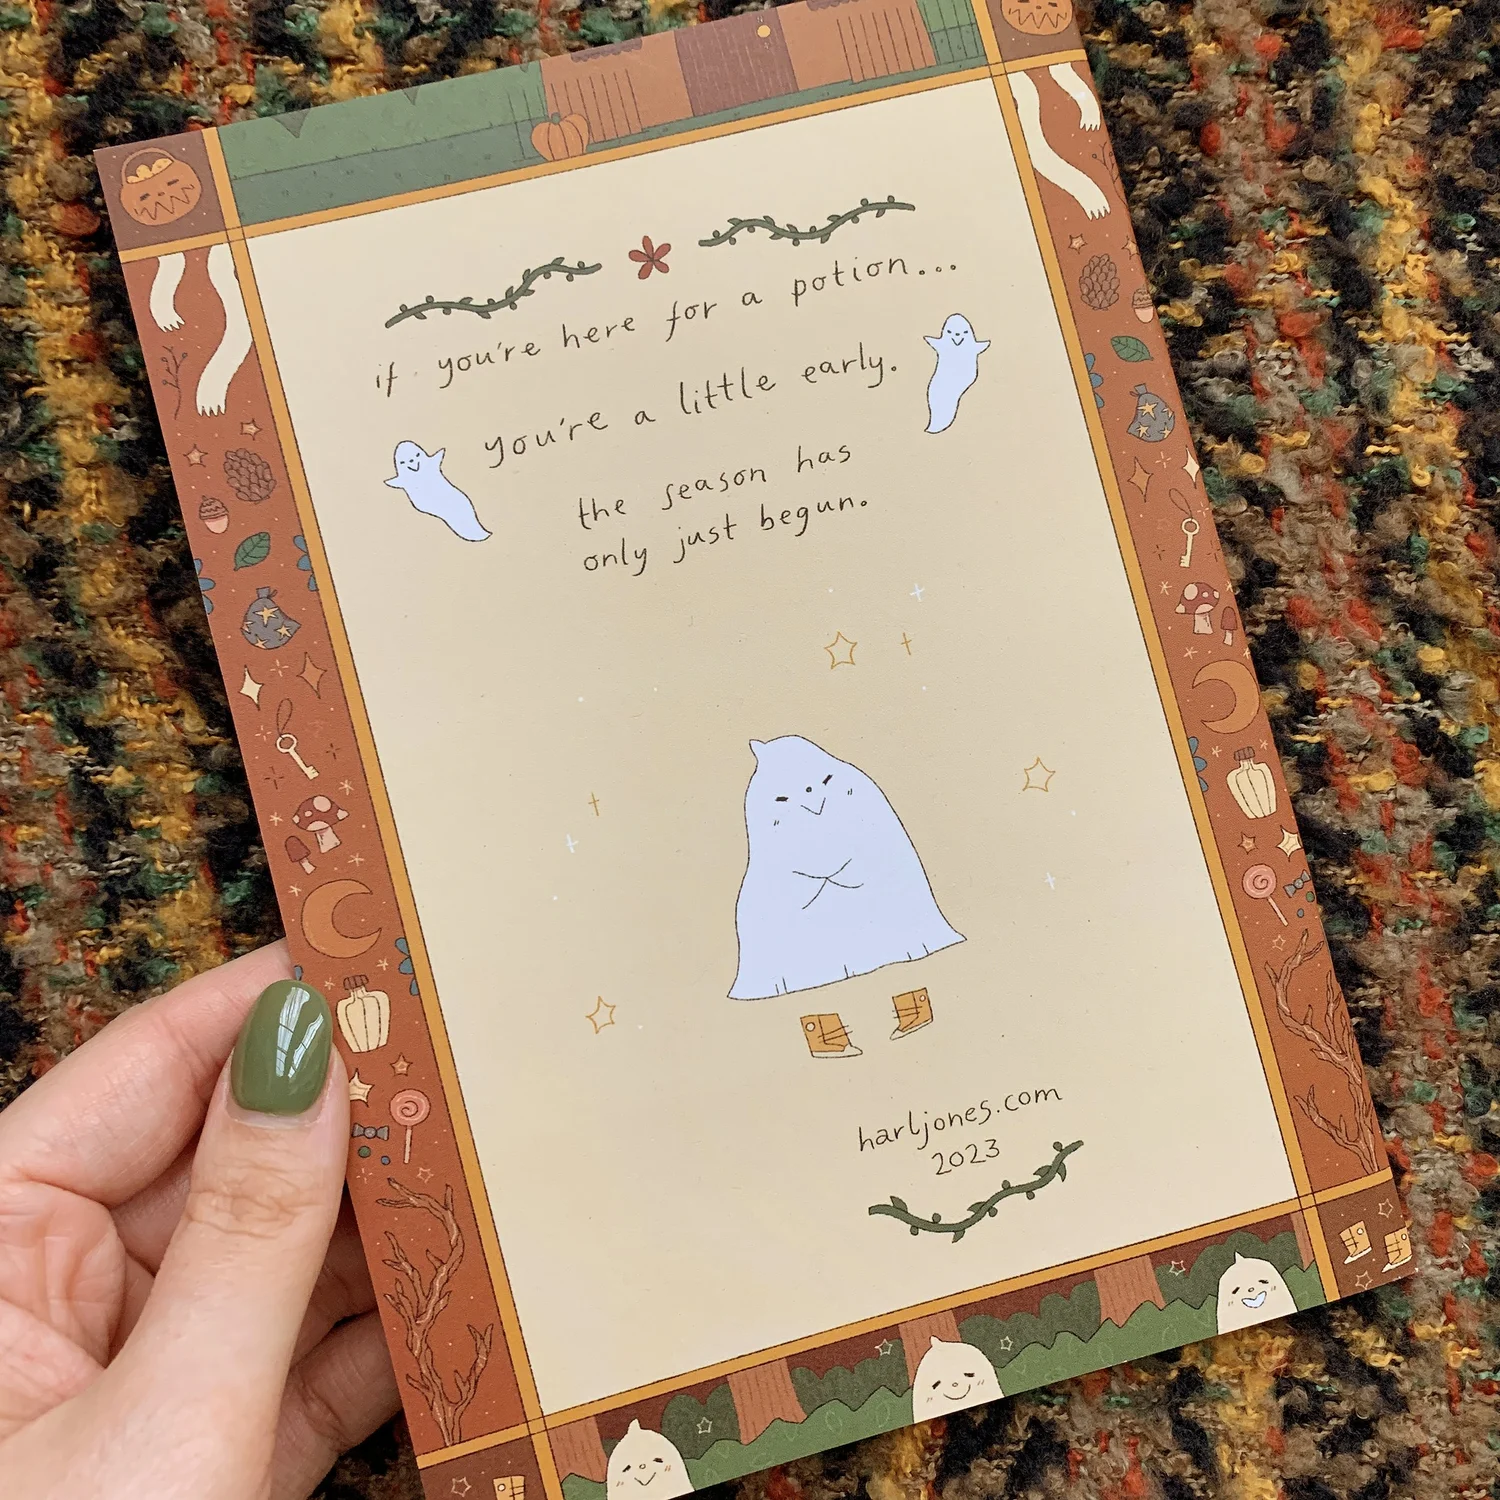 if you're here for a potion...
you're a little early.
the season has
only just begun.
harljones.com
2023